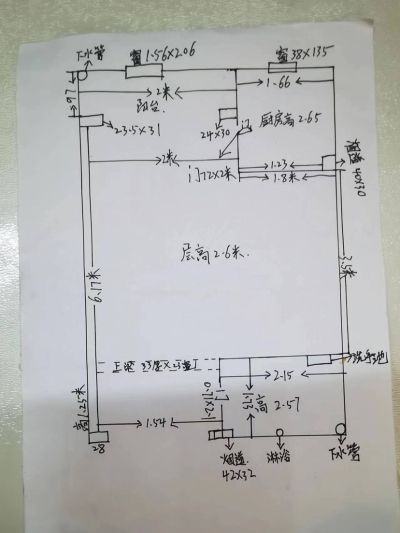 下水管
窗1.56×206
窗38×135
97
2米
1.66
阳台
厨房高2.65
23.5×31
24×30
门
2米
门72×2米
1.23
40×30
1.8米
层高2.6米.
6.17米
3.5米
上梁
洗手池
2.15
高1.25米
1.75
高 2.57
1.54
28
烟道
淋浴
下水管
42×32